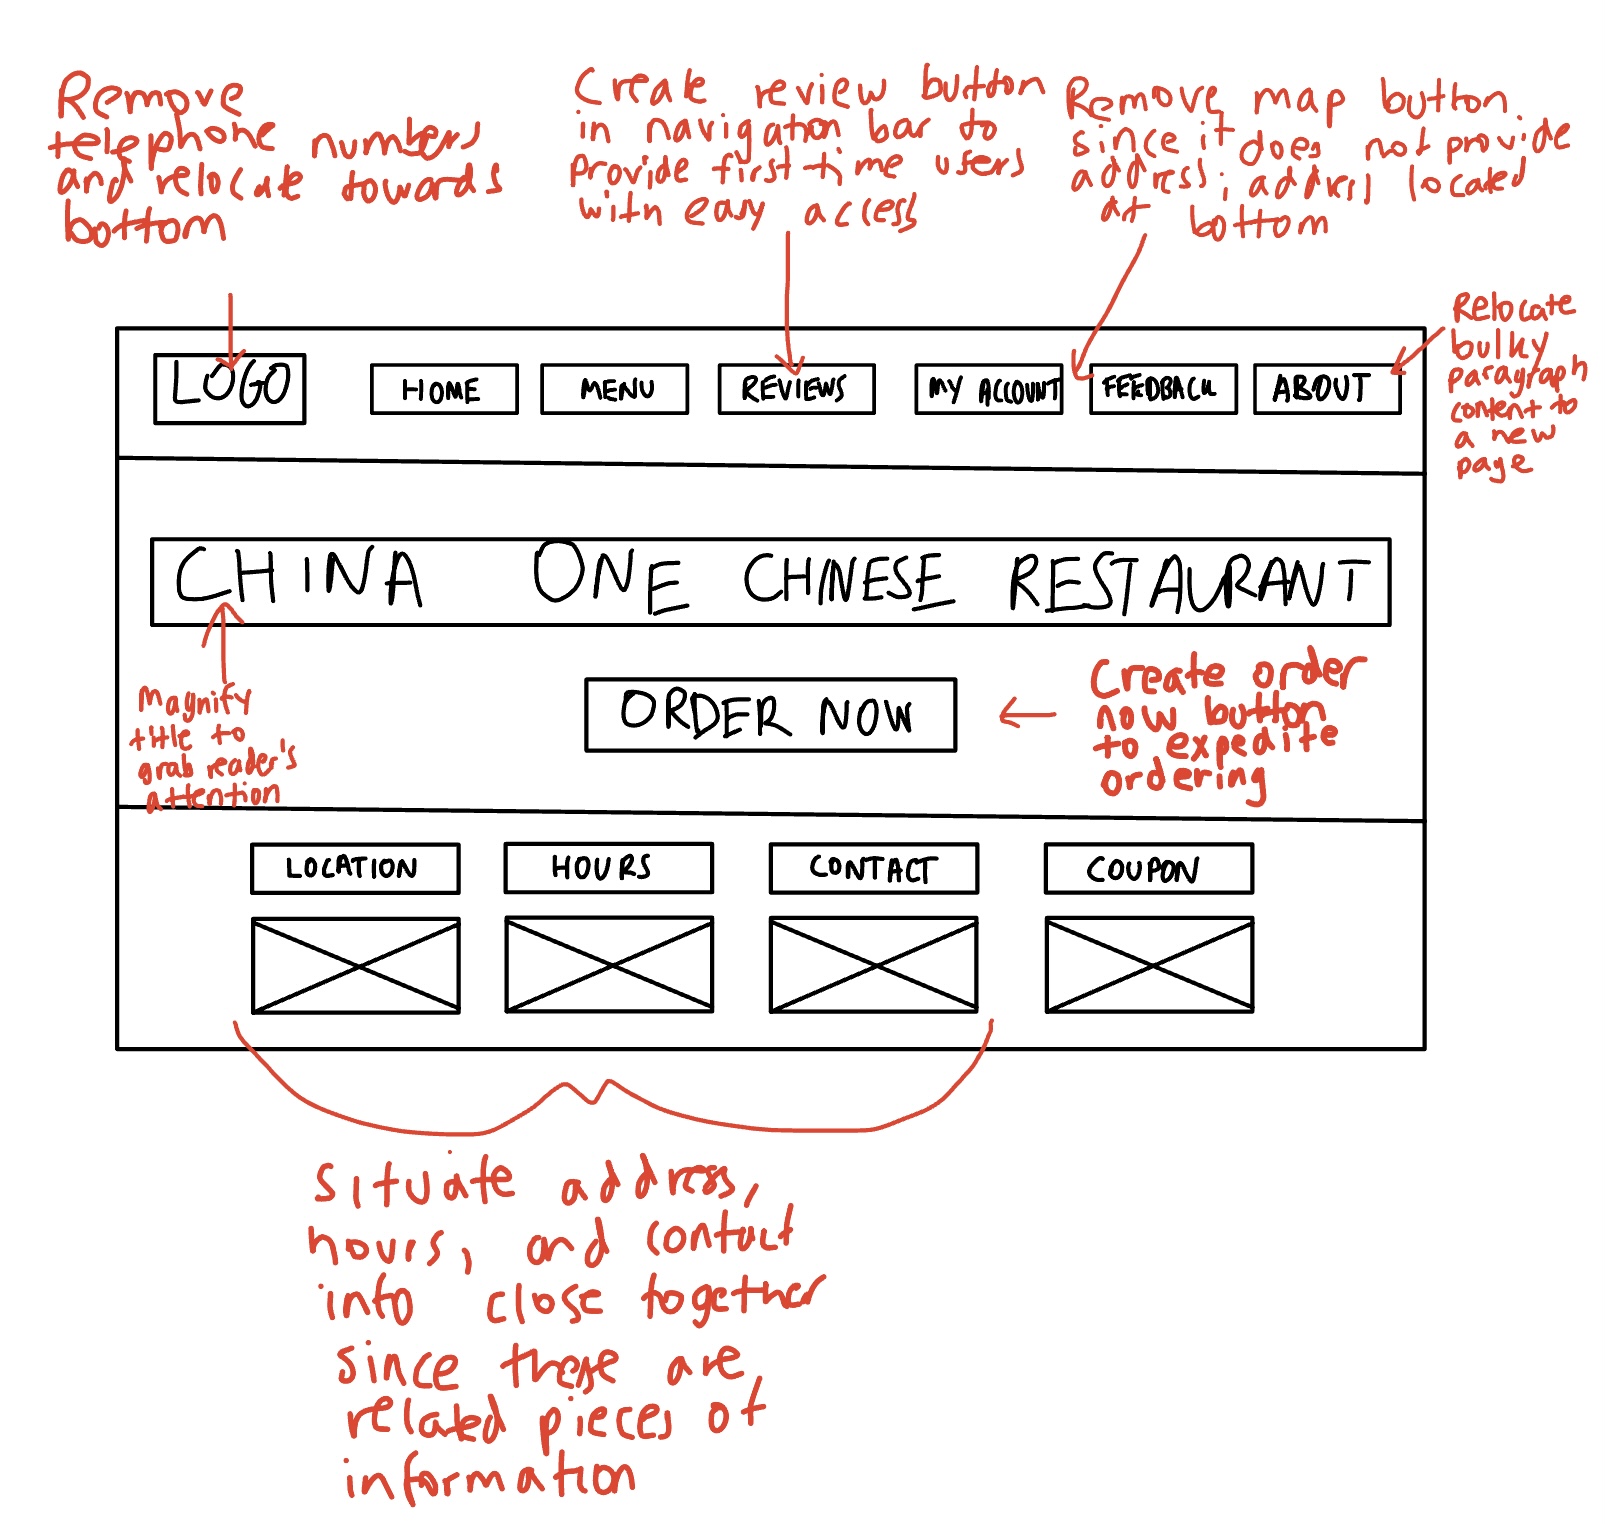 Remove
telephone numbers
and relocate towards
bottom
Create review button
in navigation bar to
provide first time users
with easy access
Remove map button
since it does not provide
address; address located
at bottom
Relocate
bulky
paragraph
content to
a new
page
LOGO
HOME
MENU
REVIEWS
MY ACCOUNT
FEEDBACK
ABOUT
CHINA ONE CHINESE RESTAURANT
Magnify
title to
grab reader's
attention
ORDER NOW
Create order
now button
to expedite
ordering
LOCATION
HOURS
CONTACT
COUPON
Situate address,
hours, and contact
info close together
since these are
related pieces of
information